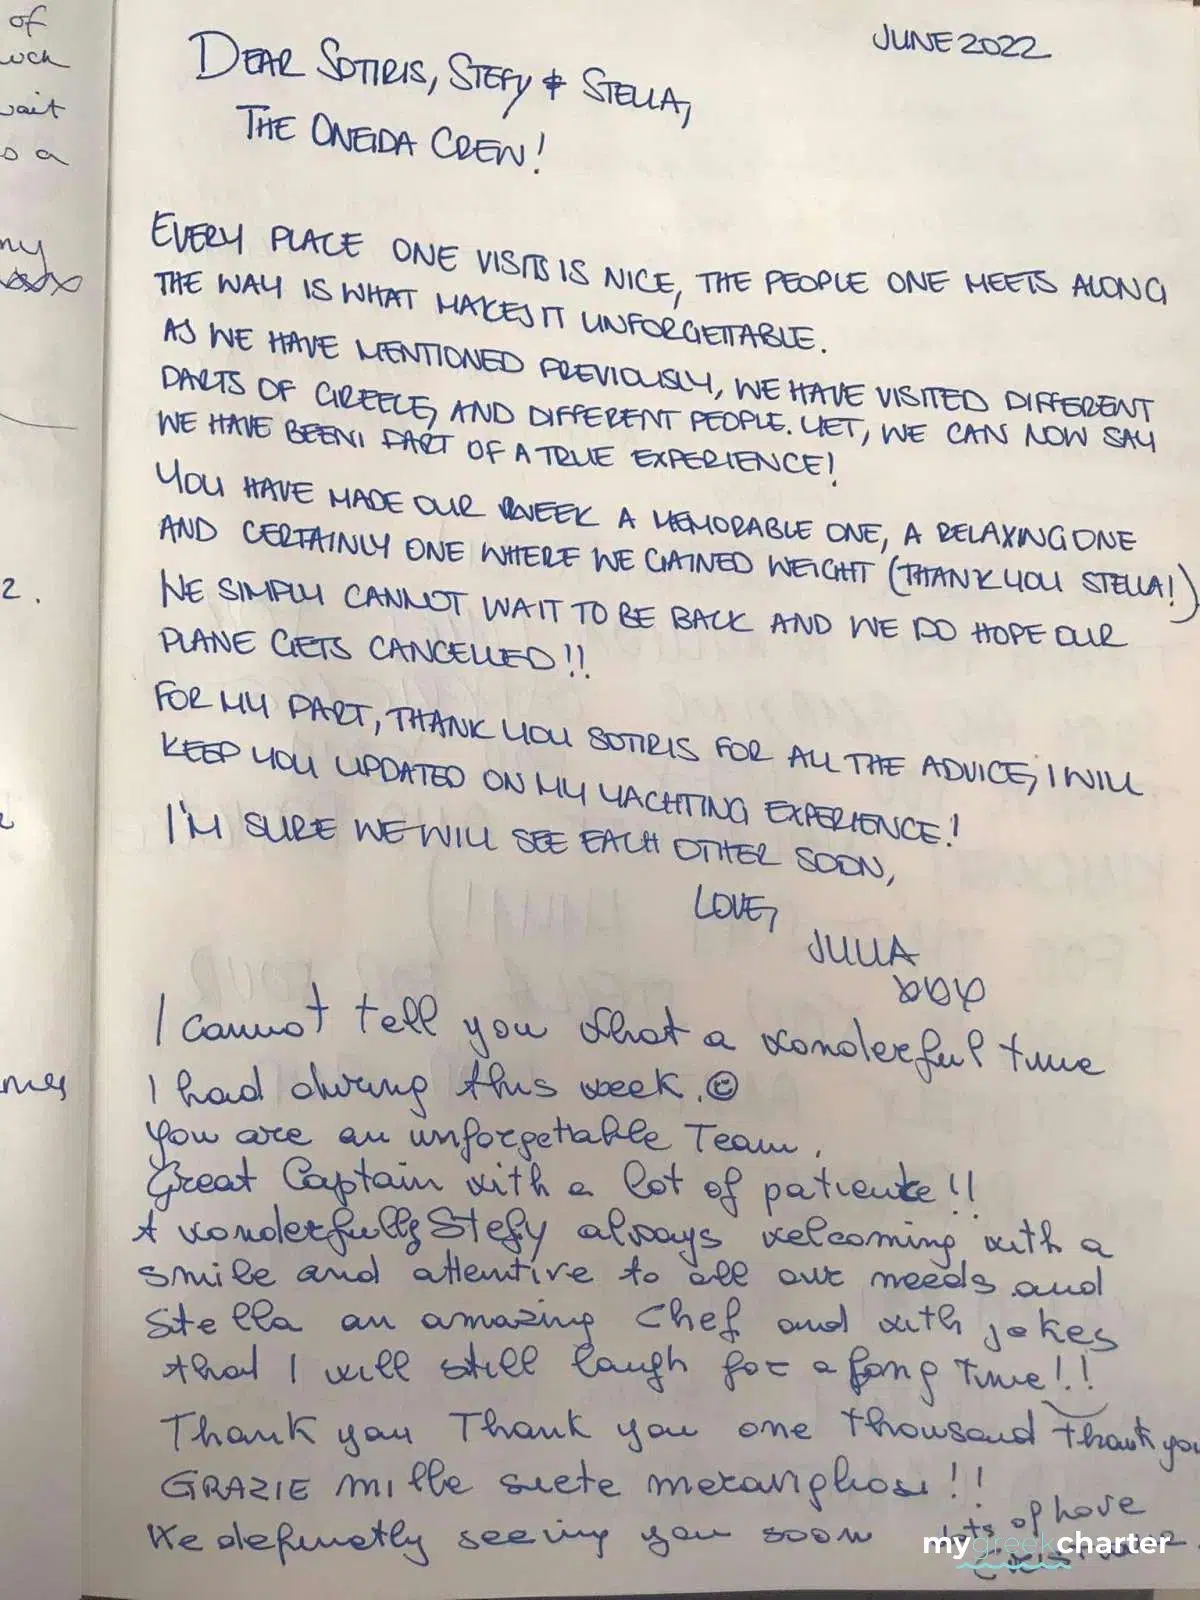 of
uch
wait
so a
my
2.
mes
JUNE 2022
DEAR SOTIRIS, STEFY & STELLA,
THE ONEIDA CREW!
EVERY PLACE ONE VISITS IS NICE, THE PEOPLE ONE MEETS ALONG
THE WAY IS WHAT MAKES IT UNFORGETTABLE.
AS WE HAVE MENTIONED PREVIOUSLY, WE HAVE VISITED DIFFERENT
PARTS OF GREECE, AND DIFFERENT PEOPLE. YET, WE CAN NOW SAY
WE HAVE BEEN PART OF A TRUE EXPERIENCE!
YOU HAVE MADE OUR WEEK A MEMORABLE ONE, A RELAXING ONE
AND CERTAINLY ONE WHERE WE GAINED WEIGHT (THANK YOU STELLA!)
WE SIMPLY CANNOT WAIT TO BE BACK AND WE DO HOPE OUR
PLANE GETS CANCELLED!!
FOR MY PART, THANK YOU SOTIRIS FOR ALL THE ADVICE, I WILL
KEEP YOU UPDATED ON MY YACHTING EXPERIENCE!
I'M SURE WE WILL SEE EACH OTHER SOON,
LOVE,
JULIA
I cannot tell you what a wonderful time
I had during this week. ☺
You are an unforgettable Team.
Great Captain with a lot of patience!!
A wonderfully Stefy always welcoming with a
smile and attentive to all our needs and
Stella an amazing chef and with jokes
that I will still laugh for a long time!!
Thank you Thank you one thousand thank you
GRAZIE mille siete meravigliosi!!
We definetly seeing you soon
lots of love
mygreekcharter